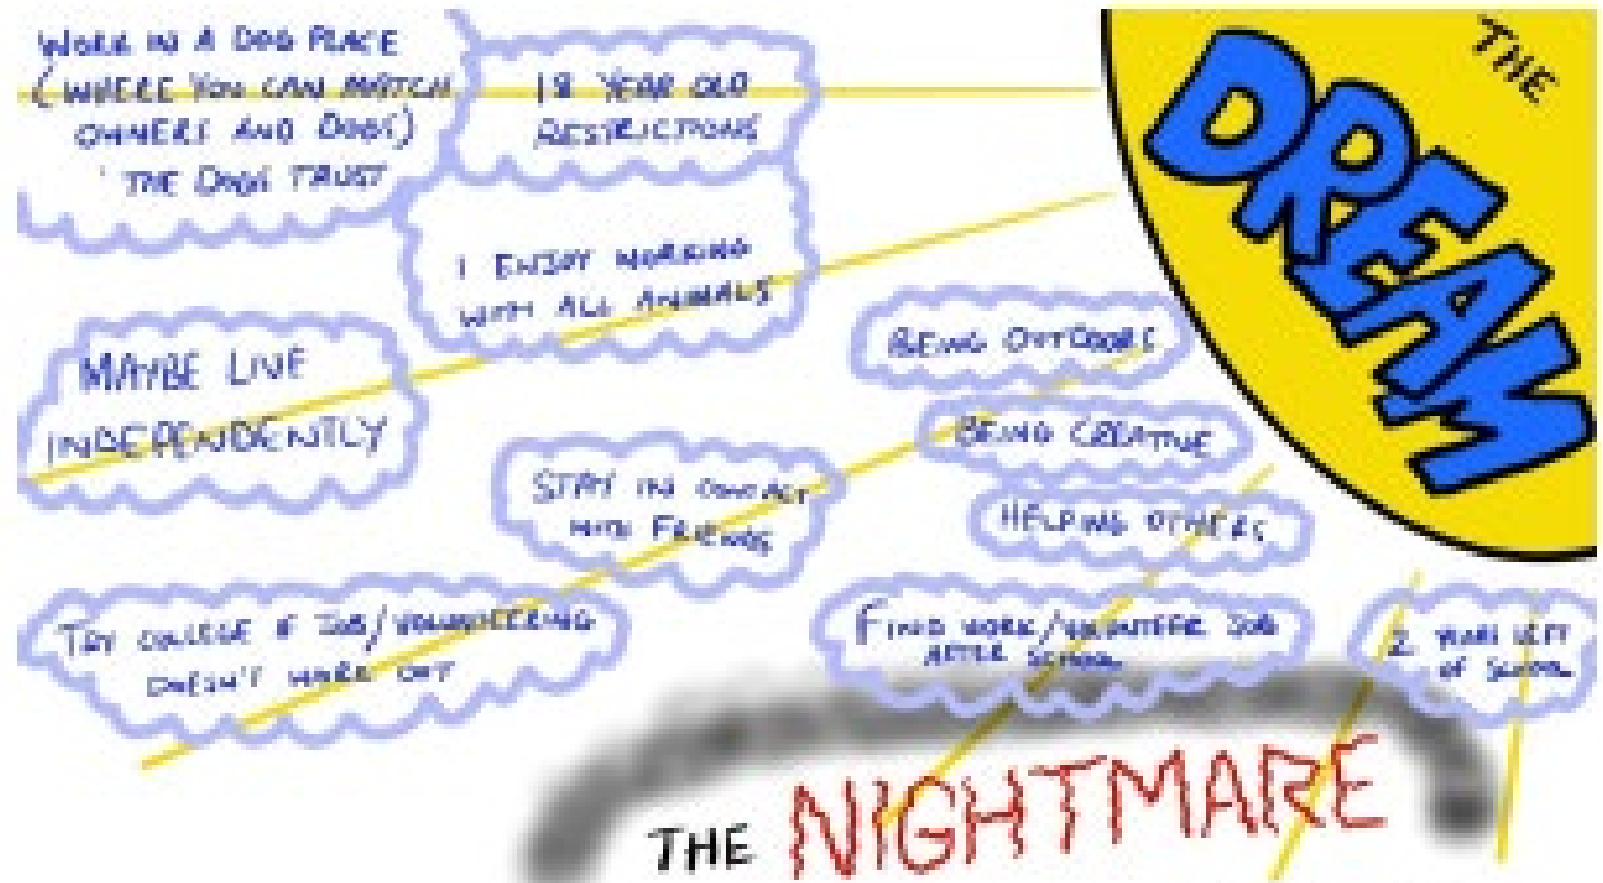 WORK IN A DOG PLACE
(WHERE YOU CAN MATCH
OWNERS AND DOGS)
THE DOGS TRUST
18 YEAR OLD
RESTRICTIONS
THE
DREAM
I ENJOY WORKING
WITH ALL ANIMALS
MAYBE LIVE
INDEPENDENTLY
BEING OUTDOORS
BEING CREATIVE
STAY IN CONTACT
WITH FRIENDS
HELPING OTHERS
TRY COLLEGE IF JOB/VOLUNTEERING
DOESN'T WORK OUT
FIND WORK/VOLUNTEER JOB
AFTER SCHOOL
2 YEARS LEFT
OF SCHOOL
THE NIGHTMARE